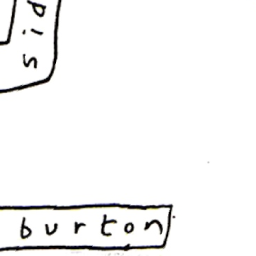 sid
burton